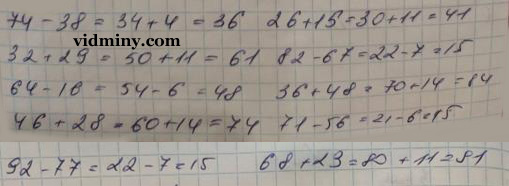 74 - 38 = 34 + 4 = 36 26 + 15 = 30 + 11 = 41
vidminy.com
32 + 29 = 50 + 11 = 61 82 - 67 = 22 - 7 = 15
64 - 16 = 54 - 6 = 48 36 + 48 = 70 + 14 = 84
46 + 28 = 60 + 14 = 74 71 - 56 = 21 - 6 = 15
92 - 77 = 22 - 7 = 15 68 + 23 = 80 + 11 = 81